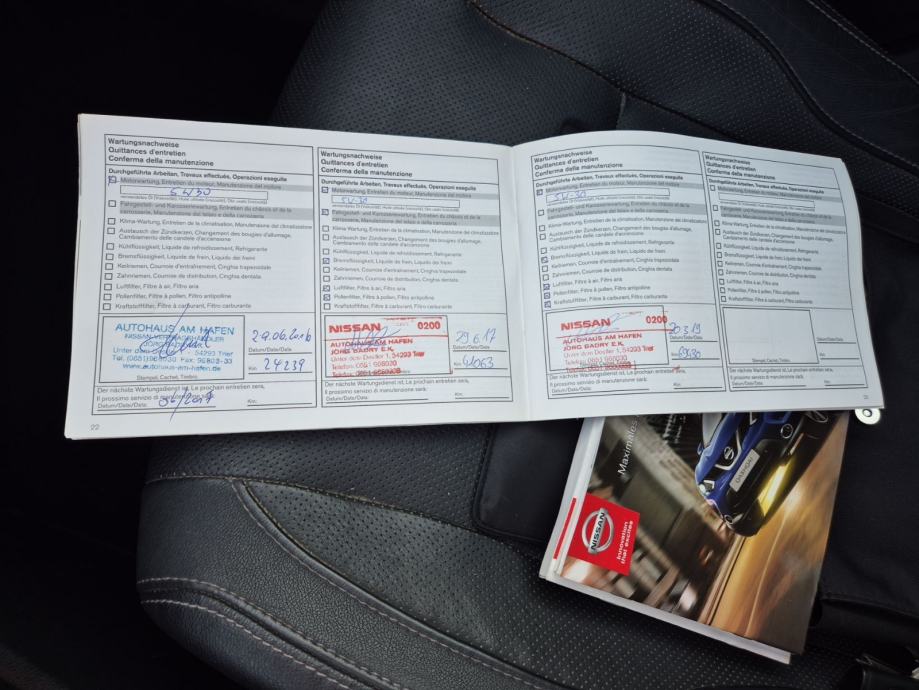 Wartungsnachweise
Quittances d'entretien
Conferma della manutenzione
Durchgeführte Arbeiten, Travaux effectués, Operazioni eseguite
Motorwartung, Entretien du moteur, Manutenzione del motore
5W30
Fahrgestell- und Karosseriewartung, Entretien du châssis et de la
carrosserie, Manutenzione del telaio e della carrozzeria
Klima-Wartung, Entretien de la climatisation, Manutenzione del climatizzatore
Austausch der Zündkerzen, Changement des bougies d'allumage,
Cambiamento delle candele d'accensione
Kühlflüssigkeit, Liquide de refroidissement, Refrigerante
Bremsflüssigkeit, Liquide de frein, Liquido dei freni
Keilriemen, Courroie d'entraînement, Cinghia trapezoidale
Zahnriemen, Courroie de distribution, Cinghia dentata
Luftfilter, Filtre à air, Filtro aria
Pollenfilter, Filtre à pollen, Filtro antipolline
Kraftstofffilter, Filtre à carburante, Filtro carburante
AUTOHAUS AM HAFEN
NISSAN-VERTRAGSHÄNDLER
Unter dem 54293 Trier
www.autohaus-am-hafen.de
Stempel, Cachet, Timbro
29.06.2016
Datum/Date/Data
Km: 24239
Der nächste Wartungsdienst ist, Le prochain entretien sera,
Il prossimo servizio di manutenzione sarà:
Datum/Date/Data: 06/2017 Km:
22
Wartungsnachweise
Quittances d'entretien
Conferma della manutenzione
Durchgeführte Arbeiten, Travaux effectués, Operazioni eseguite
Motorwartung, Entretien du moteur, Manutenzione del motore
5W-30
Fahrgestell- und Karosseriewartung, Entretien du châssis et de la
carrosserie, Manutenzione del telaio e della carrozzeria
Klima-Wartung, Entretien de la climatisation, Manutenzione del climatizzatore
Austausch der Zündkerzen, Changement des bougies d'allumage,
Cambiamento delle candele d'accensione
Kühlflüssigkeit, Liquide de refroidissement, Refrigerante
Bremsflüssigkeit, Liquide de frein, Liquido dei freni
Keilriemen, Courroie d'entraînement, Cinghia trapezoidale
Zahnriemen, Courroie de distribution, Cinghia dentata
Luftfilter, Filtre à air, Filtro aria
Pollenfilter, Filtre à pollen, Filtro antipolline
Kraftstofffilter, Filtre à carburante, Filtro carburante
NISSAN 0200
AUTOHAUS AM HAFEN
JÖRG BADRY E.K.
Unter dem Dostler 1, 54293 Trier
Telefon 0651 968030
29.6.17
Datum/Date/Data
Km:
Der nächste Wartungsdienst ist, Le prochain entretien sera,
Il prossimo servizio di manutenzione sarà:
Datum/Date/Data: Km:
Wartungsnachweise
Quittances d'entretien
Conferma della manutenzione
Durchgeführte Arbeiten, Travaux effectués, Operazioni eseguite
Motorwartung, Entretien du moteur, Manutenzione del motore
5W-30
Fahrgestell- und Karosseriewartung, Entretien du châssis et de la
carrosserie, Manutenzione del telaio e della carrozzeria
Klima-Wartung, Entretien de la climatisation, Manutenzione del climatizzatore
Austausch der Zündkerzen, Changement des bougies d'allumage,
Cambiamento delle candele d'accensione
Kühlflüssigkeit, Liquide de refroidissement, Refrigerante
Bremsflüssigkeit, Liquide de frein, Liquido dei freni
Keilriemen, Courroie d'entraînement, Cinghia trapezoidale
Zahnriemen, Courroie de distribution, Cinghia dentata
Luftfilter, Filtre à air, Filtro aria
Pollenfilter, Filtre à pollen, Filtro antipolline
Kraftstofffilter, Filtre à carburante, Filtro carburante
NISSAN 0200
AUTOHAUS AM HAFEN
JÖRG BADRY E.K.
Unter dem Dostler 1, 54293 Trier
Telefon 0651 968030
Datum/Date/Data
Km:
Der nächste Wartungsdienst ist, Le prochain entretien sera,
Il prossimo servizio di manutenzione sarà:
Datum/Date/Data: Km:
Wartungsnachweise
Quittances d'entretien
Conferma della manutenzione
Durchgeführte Arbeiten, Travaux effectués, Operazioni eseguite
Motorwartung, Entretien du moteur, Manutenzione del motore
Fahrgestell- und Karosseriewartung, Entretien du châssis et de la
carrosserie, Manutenzione del telaio e della carrozzeria
Klima-Wartung, Entretien de la climatisation, Manutenzione del climatizzatore
Austausch der Zündkerzen, Changement des bougies d'allumage,
Cambiamento delle candele d'accensione
Kühlflüssigkeit, Liquide de refroidissement, Refrigerante
Bremsflüssigkeit, Liquide de frein, Liquido dei freni
Keilriemen, Courroie d'entraînement, Cinghia trapezoidale
Zahnriemen, Courroie de distribution, Cinghia dentata
Luftfilter, Filtre à air, Filtro aria
Pollenfilter, Filtre à pollen, Filtro antipolline
Kraftstofffilter, Filtre à carburante, Filtro carburante
Stempel, Cachet, Timbro
Datum/Date/Data
Km:
Der nächste Wartungsdienst ist, Le prochain entretien sera,
Il prossimo servizio di manutenzione sarà:
Datum/Date/Data: Km:
Maximales
NISSAN
Innovation
that excites
QASHQAI